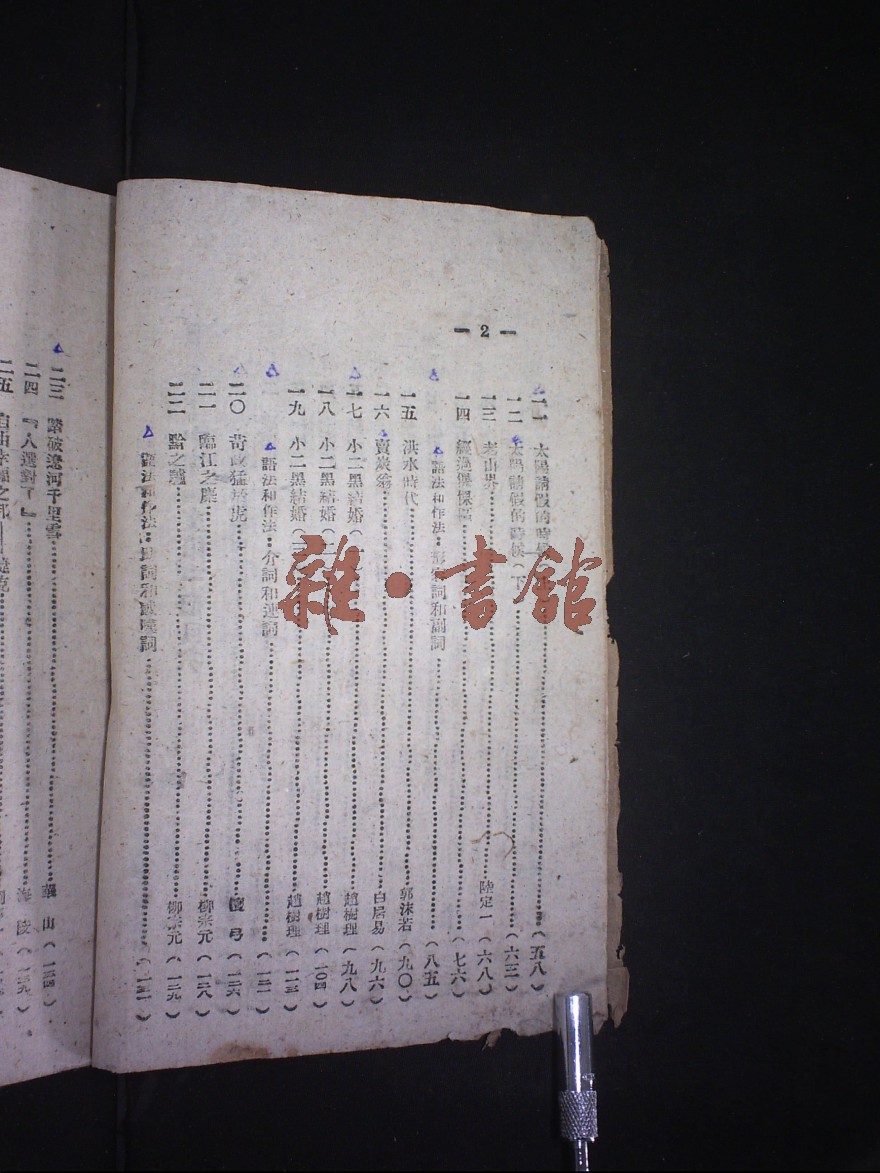 — 2 —
一一 太陽請假的時候 (五八)
一二 太陽請假的時候(下) (六三)
一三 老山界 陸定一 (六八)
一四 經過 (七六)
語法和作法：形容詞和副詞 (八五)
一五 洪水時代 郭沫若 (九〇)
一六 賣炭翁 白居易 (九六)
一七 小二黑結婚(一) 趙樹理 (九八)
一八 小二黑結婚(二) 趙樹理 (一〇四)
一九 小二黑結婚(三) 趙樹理 (一一三)
語法和作法：介詞和連詞 (一二一)
二〇 苛政猛於虎 檀弓 (一二六)
二一 臨江之麋 柳宗元 (一二八)
二二 黔之驢 柳宗元 (一二九)
語法和作法： 詞和感嘆詞 (一三一)
二三 踏破遼河千里雪 華山 (一三四)
二四 『人選對了』 海陵
二五 自由
雜·書館